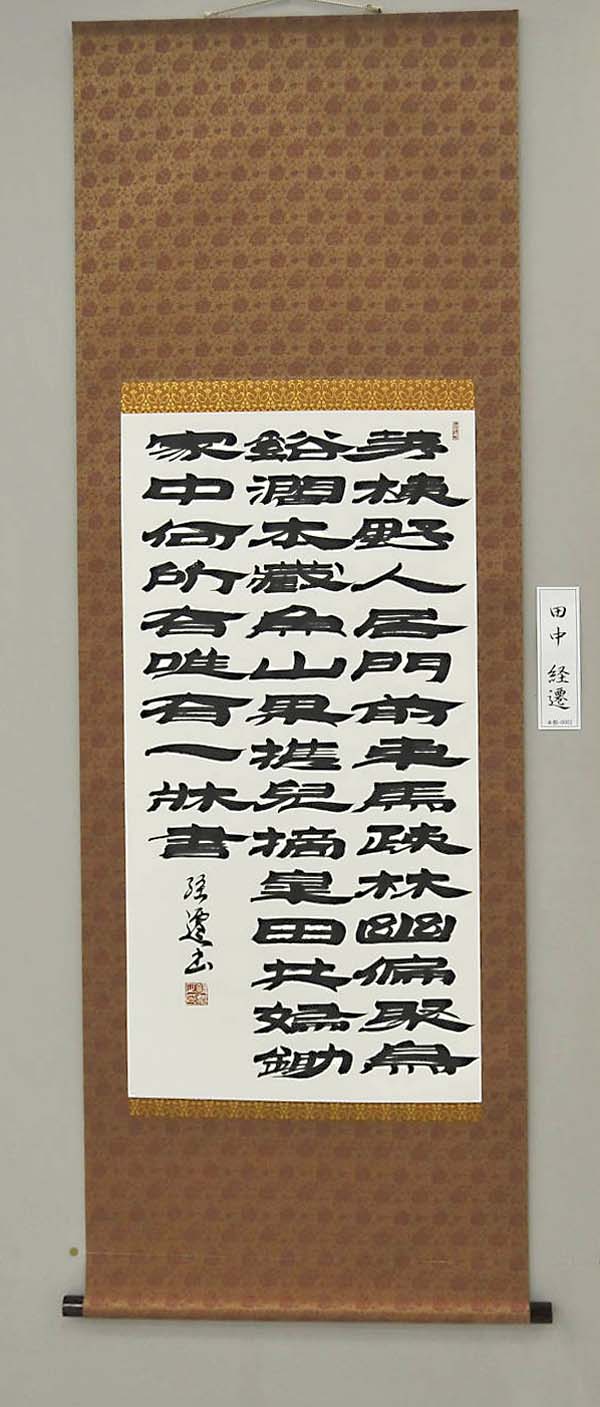 茅棟野人居門前車馬疎林幽偏聚鳥
谿濶本藏魚山果携兒摘皐田共婦鋤
家中何所有唯有一牀書
経遷書
田中 経遷